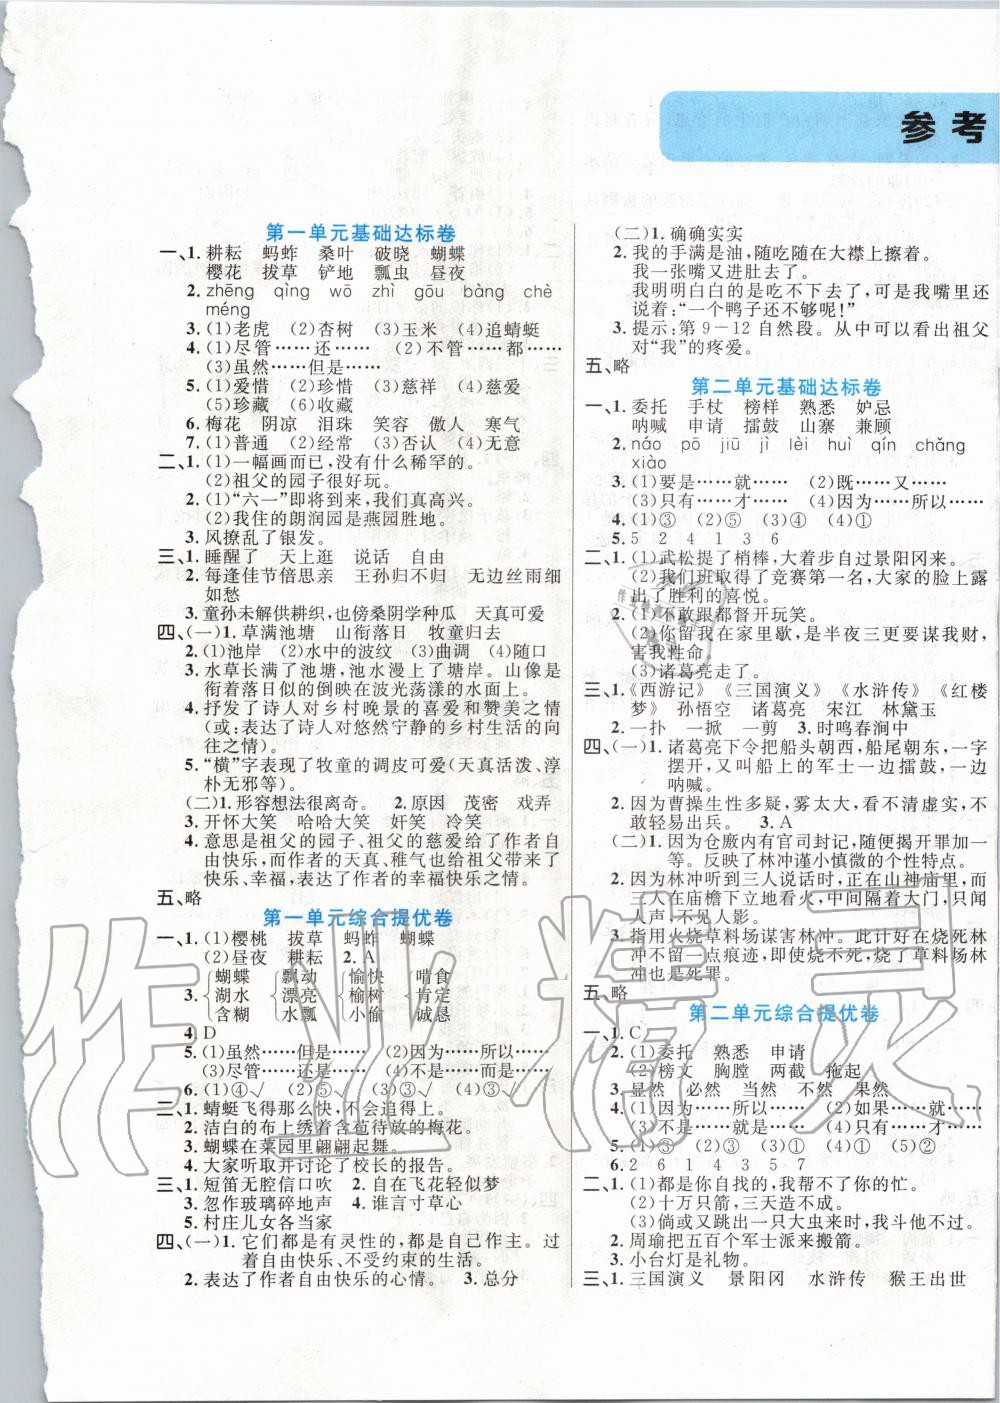 参考
第一单元基础达标卷
一、1. 耕耘 蚂蚱 桑叶 破晓 蝴蝶
樱花 拔草 铲地 瓢虫 昼夜
2. zhēng qìng wō zhì gōu bàng chè
méng
3. (1)老虎 (2)杏树 (3)玉米 (4)追蜻蜓
4. (1)尽管……还…… (2)不管……都……
(3)虽然……但是……
5. (1)爱惜 (2)珍惜 (3)慈祥 (4)慈爱
(5)珍藏 (6)收藏
6. 梅花 阴凉 泪珠 笑容 傲人 寒气
7. (1)普通 (2)经常 (3)否认 (4)无意
二、1. (1)一幅画而已,没有什么稀罕的。
(2)祖父的园子很好玩。
2. (1)“六一”即将到来,我们真高兴。
(2)我住的朗润园是燕园胜地。
3. 风撩乱了银发。
三、1. 睡醒了 天上逛 说话 自由
2. 每逢佳节倍思亲 王孙归不归 无边丝雨细
如愁
3. 童孙未解供耕织,也傍桑阴学种瓜 天真可爱
四、(一)1. 草满池塘 山衔落日 牧童归去
2. (1)池岸 (2)水中的波纹 (3)曲调 (4)随口
3. 水草长满了池塘,池水漫上了塘岸。山像是
衔着落日似的倒映在波光荡漾的水面上。
4. 抒发了诗人对乡村晚景的喜爱和赞美之情
(或:表达了诗人对悠然宁静的乡村生活的向
往之情)。
5. “横”字表现了牧童的调皮可爱(天真活泼、淳
朴无邪等)。
(二)1. 形容想法很离奇。 2. 原因 茂密 戏弄
3. 开怀大笑 哈哈大笑 奸笑 冷笑
4. 意思是祖父的园子、祖父的慈爱给了作者自
由快乐。而作者的天真、稚气也给祖父带来了
快乐、幸福,表达了作者的幸福快乐之情。
五、略
第一单元综合提优卷
一、1. (1)樱桃 拔草 蚂蚱 蝴蝶
(2)昼夜 耕耘 2. A
3. {蝴蝶 {飘动 {愉快 {啃食
湖水 漂亮 榆树 肯定
含糊 水瓢 小偷 诚恳
4. D
5. (1)虽然……但是…… (2)因为……所以……
(3)尽管……还是…… (4)不是……而是……
6. (1)④√ (2)⑤√ (3)③√ (4)③√
二、1. 蜻蜓飞得那么快,不会追得上。
2. 洁白的布上绣着含苞待放的梅花。
3. 蝴蝶在菜园里翩翩起舞。
4. 大家听取并讨论了校长的报告。
三、1. 短笛无腔信口吹 2. 自在飞花轻似梦
3. 忽作玻璃碎地声 4. 谁言寸草心
5. 村庄儿女各当家
四、(一)1. 它们都是有灵性的,都是自己作主。过
着自由快乐、不受约束的生活。
2. 表达了作者自由快乐的心情。 3. 总分
(二)1. 确确实实
2. 我的手满是油,随吃随在大襟上擦着。
我一张嘴又进肚去了。
我明明白白的是吃不下去了,可是我嘴里还
说着:“一个鸭子还不够呢!”
3. 提示:第9—12自然段。从中可以看出祖父
对“我”的疼爱。
五、略
第二单元基础达标卷
一、1. 委托 手杖 榜样 熟悉 妒忌
呐喊 申请 擂鼓 山寨 兼顾
2. náo pō jiū jì lèi huì qín chǎng
xiào
3. (1)要是……就…… (2)既……又……
(3)只有……才…… (4)因为……所以……
4. (1)③ (2)⑤ (3)④ (4)①
5. 5 2 4 1 3 6
二、1. (1)武松提了梢棒,大着步自过景阳冈来。
(2)我们班取得了竞赛第一名,大家的脸上露
出了胜利的喜悦。
2. (1)不敢跟都督开玩笑。
(2)你留我在家里歇,是半夜三更要谋我财,
害我性命。
(3)诸葛亮走了。
三、1. 《西游记》 《三国演义》 《水浒传》 《红楼
梦》 孙悟空 诸葛亮 宋江 林黛玉
2. 一扑 一掀 一剪 3. 时鸣春涧中
四、(一)1. 诸葛亮下令把船头朝西,船尾朝东,一字
摆开,又叫船上的军士一边擂鼓,一边
呐喊。
2. 因为曹操生性多疑,雾太大,看不清虚实,不
敢轻易出兵。 3. A
(二)1. 因为仓廒内有官司封记,随便揭开罪加一
等。反映了林冲谨小慎微的个性特点。
2. 因为林冲听到三人说话时,正在山神庙里,而
三人在庙檐下立地看火,中间隔着大门,只闻
人声,不见人影。
3. 指用火烧草料场谋害林冲。此计好在烧死林
冲不留一点痕迹,即使烧不死,烧了草料场林
冲也是死罪。
五、略
第二单元综合提优卷
一、1. C
2. (1)委托 熟悉 申请
(2)榜文 胸膛 两截 拖起
3. 显然 必然 当然 不然 果然
4. (1)因为……所以…… (2)如果……就……
(3)不是……就是…… (4)只有……才……
5. (1)③ (2)② (3)① (4)① (5)②
6. 2 6 1 4 3 5 7
二、1. (1)都是你自找的,我帮不了你的忙。
(2)十万只箭,三天造不成。
(3)倘或又跳出一只大虫来时,我斗他不过。
2. 周瑜把五百个军士派来搬箭。
3. 小台灯是礼物。
三、1. 三国演义 景阳冈 水浒传 猴王出世
作业精灵